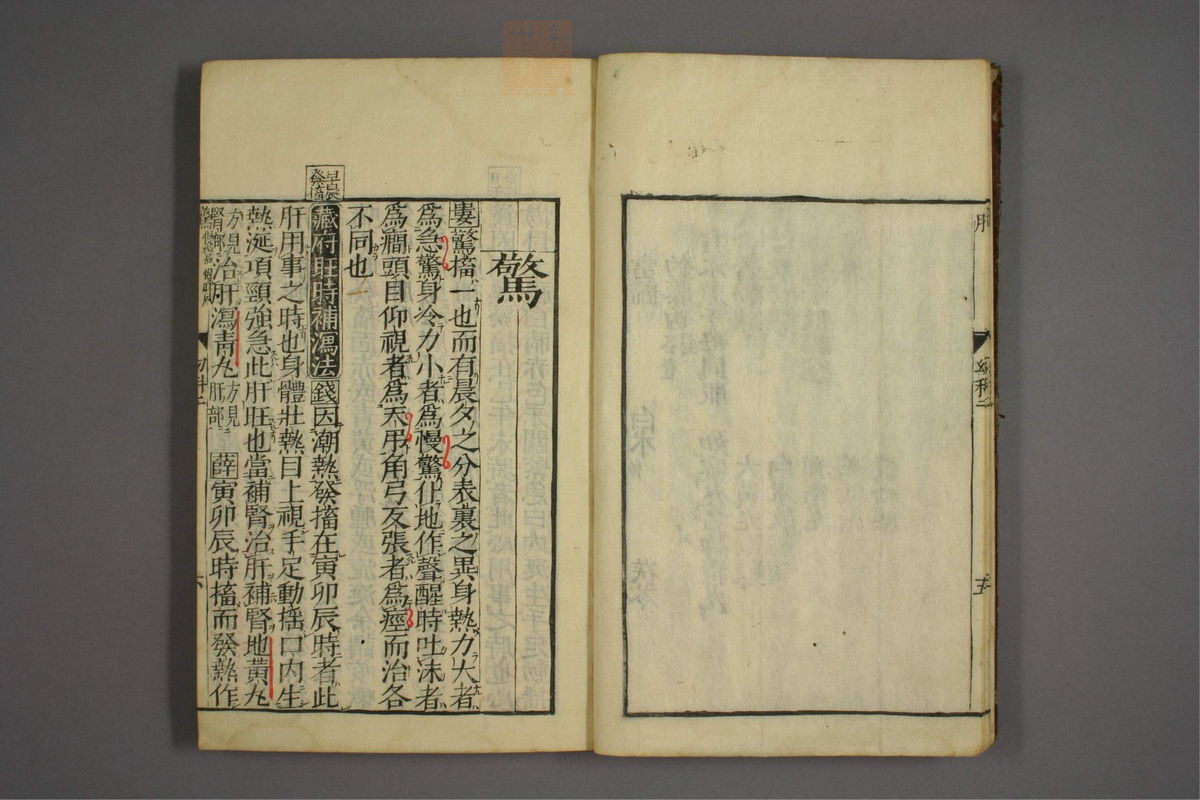 肝
幼科二
五
驚
婁驚搐一也而有晨夕之分表裏之異身熱力大者
爲急驚身冷力小者爲慢驚仆地作聲醒時吐沫者
爲癎頭目仰視者爲天吊角弓反張者爲痙而治各
不同也
早晨發搐
藏府旺時補瀉法錢因潮熱發搐在寅卯辰時者此
肝用事之時也身體壯熱目上視手足動搖口內生
熱涎項頸強急此肝旺也當補腎治肝補腎地黃丸
方見腎部治肝瀉青丸方見肝部薛寅卯辰時搐而發熱作
驚
幼科二
六